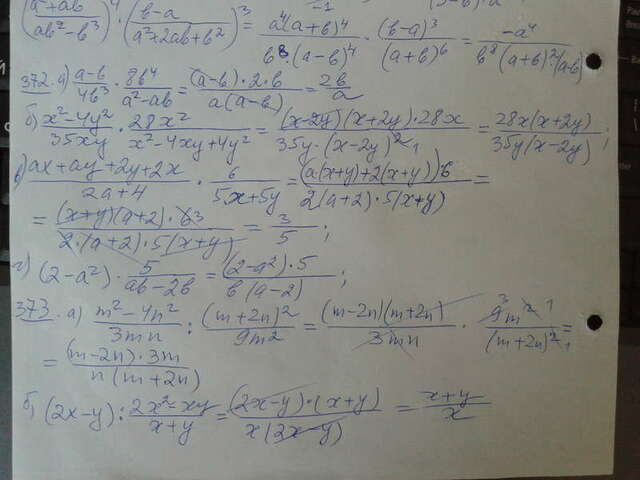 (a²+ab / ab²-b³)⁴ · (b-a / a²+2ab+b²)³ = a⁴(a+b)⁴ / b⁸·(a-b)⁴ · (b-a)³ / (a+b)⁶ = -a⁴ / b⁸(a+b)²·(a-b)
372. а) a-b / 4b³ · 8b⁴ / a²-ab = (a-b)·2·b / a(a-b) = 2b / a
б) x²-4y² / 35xy · 28x² / x²-4xy+4y² = (x-2y)(x+2y)·28x / 35y·(x-2y)² = 28x(x+2y) / 35y(x-2y);
в) ax+ay+2y+2x / 2a+4 · 6 / 5x+5y = (a(x+y)+2(x+y))6 / 2(a+2)·5(x+y) =
= (x+y)(a+2)·6 3 / 2·(a+2)·5(x+y) = 3 / 5;
г) (2-a²) · 5 / ab-2b = (2-a²)·5 / b(a-2);
373. а) m²-4n² / 3mn : (m+2n)² / 9m² = (m-2n)(m+2n) / 3mn · 9m² / (m+2n)² =
= (m-2n)·3m / n(m+2n)
б) (2x-y) : 2x²-xy / x+y = (2x-y)·(x+y) / x(2x-y) = x+y / x